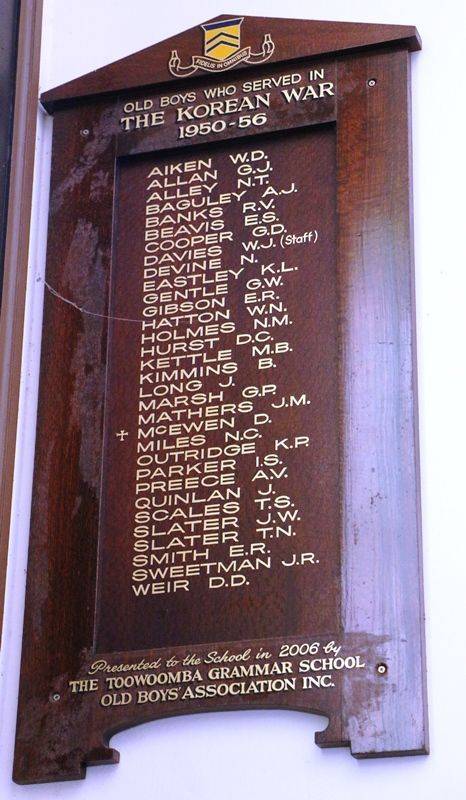 FIDELIS IN OMNIBUS
OLD BOYS WHO SERVED IN
THE KOREAN WAR
1950-56
AIKEN W.D.
ALLAN G.J.
ALLEY N.T.
BAGULEY A.J.
BANKS R.V.
BEAVIS E.S.
COOPER G.D.
DAVIES W.J. (Staff)
DEVINE N.
EASTLEY K.L.
GENTLE G.W.
GIBSON E.R.
HATTON W.N.
HOLMES N.M.
HURST D.C.
KETTLE M.B.
KIMMINS B.
LONG J.
MARSH G.P.
MATHERS J.M.
McEWEN D.
MILES N.C.
OUTRIDGE K.P.
PARKER I.S.
PREECE A.V.
QUINLAN J.
SCALES T.S.
SLATER J.W.
SLATER T.N.
SMITH E.R.
SWEETMAN J.R.
WEIR D.D.
Presented to the School in 2006 by
THE TOOWOOMBA GRAMMAR SCHOOL
OLD BOYS' ASSOCIATION INC.